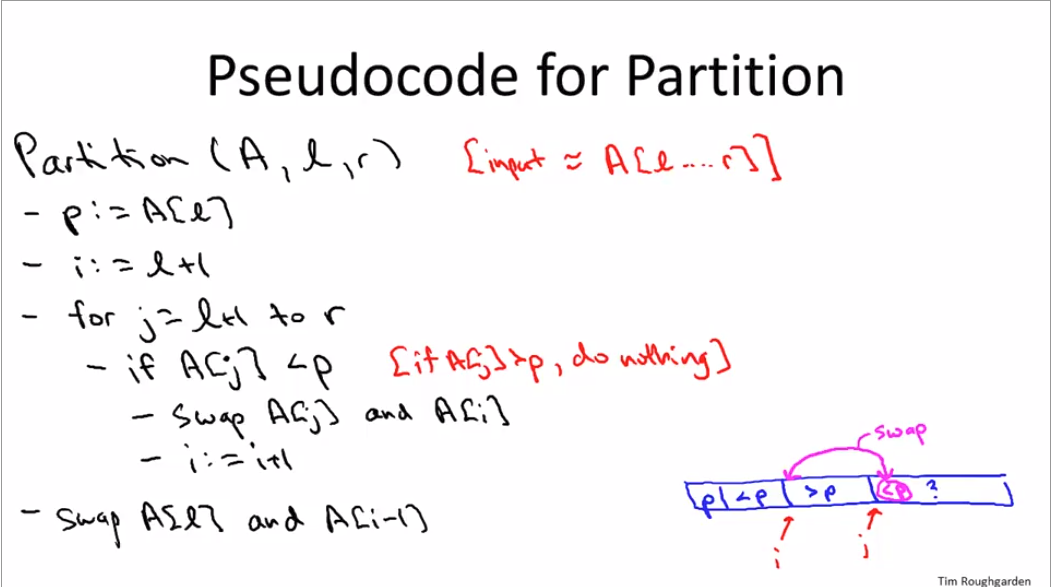 Pseudocode for Partition
Partition (A, l, r) [input ≈ A[l....r]]
- p := A[l]
- i := l+1
- for j = l+1 to r
- if A[j] < p [if A[j] > p, do nothing]
- swap A[j] and A[i]
- i := i+1
- swap A[l] and A[i-1]
swap
p <p >p <p ?
i j
Tim Roughgarden